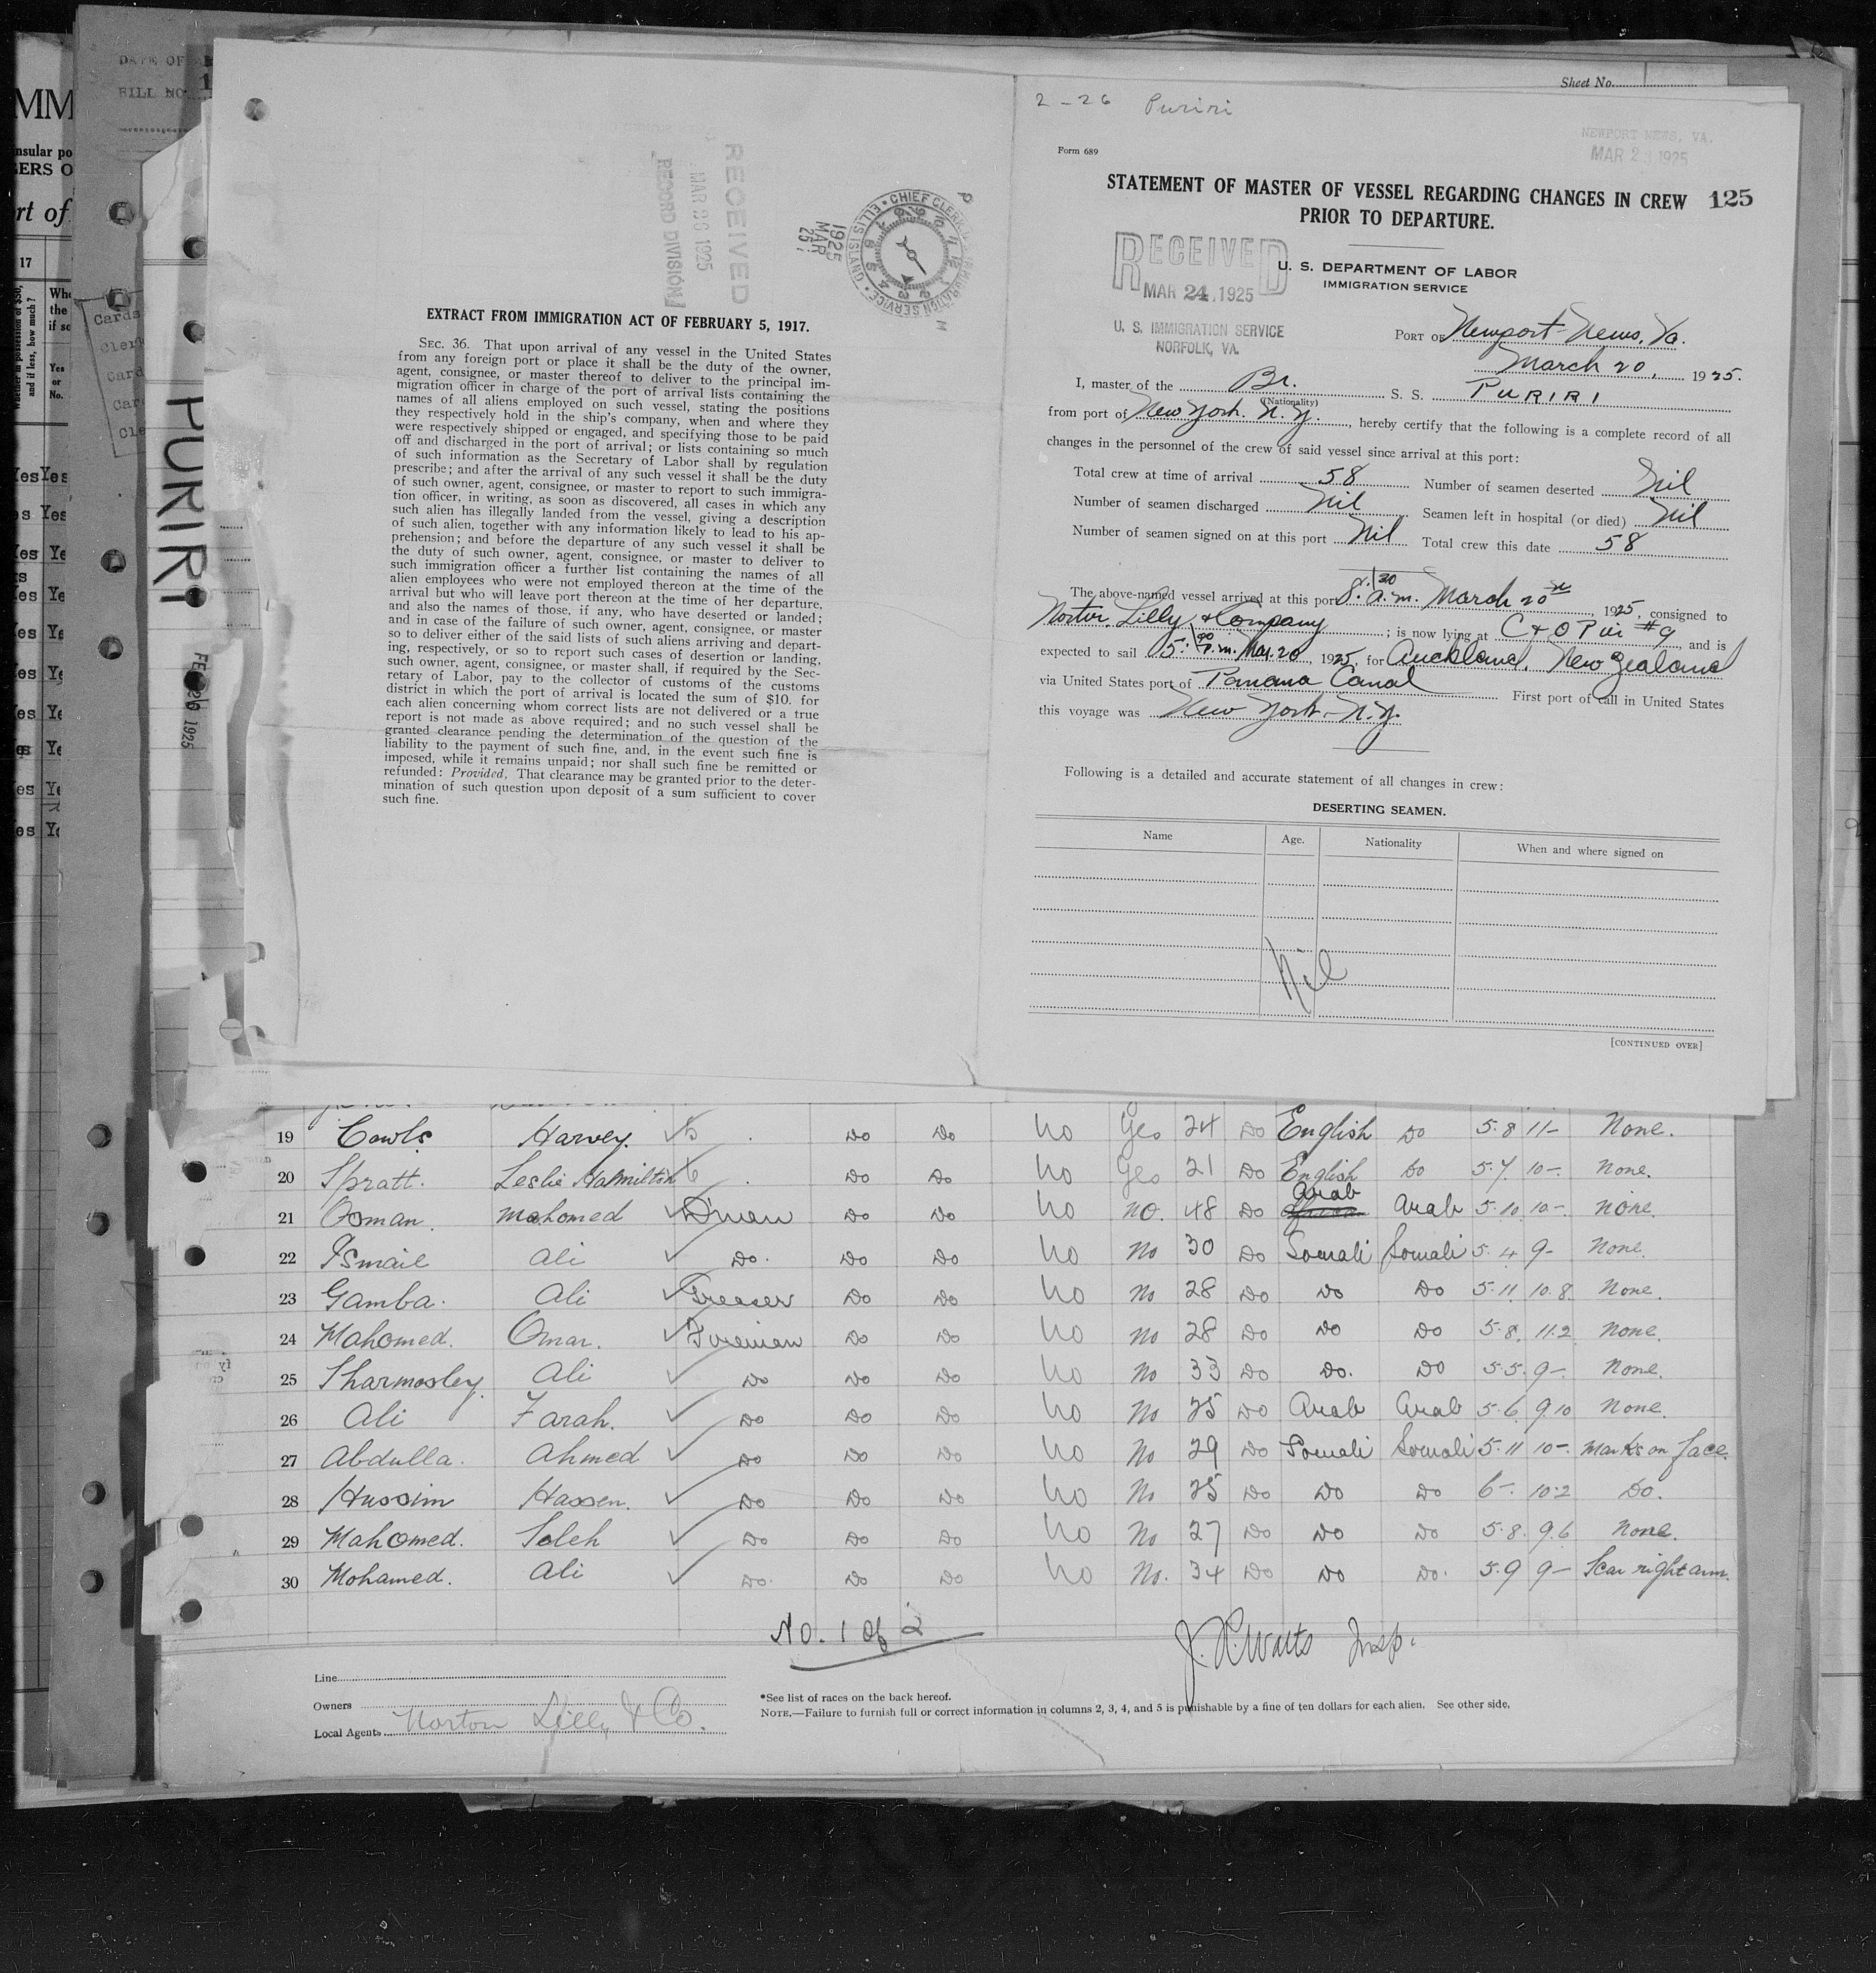 DATE OF
BILL NO.
MM
nsular po
ERS O
rt of
17
Whether in possession of $50, and if less, how much?
Yes
or
No.
Cards
Cler
Card
Car
Cle
PURIRI
FEB 26 1925
RECEIVED
MAR 26 1925
RECORD DIVISION
1925
MAR
25
CHIEF CLERK
IMMIGRATION SERVICE
ELLIS ISLAND
EXTRACT FROM IMMIGRATION ACT OF FEBRUARY 5, 1917.
SEC. 36. That upon arrival of any vessel in the United States
from any foreign port or place it shall be the duty of the owner,
agent, consignee, or master thereof to deliver to the principal im-
migration officer in charge of the port of arrival lists containing the
names of all aliens employed on such vessel, stating the positions
they respectively hold in the ship's company, when and where they
were respectively shipped or engaged, and specifying those to be paid
off and discharged in the port of arrival; or lists containing so much
of such information as the Secretary of Labor shall by regulation
prescribe; and after the arrival of any such vessel it shall be the duty
of such owner, agent, consignee, or master to report to such immigra-
tion officer, in writing, as soon as discovered, all cases in which any
such alien has illegally landed from the vessel, giving a description
of such alien, together with any information likely to lead to his ap-
prehension; and before the departure of any such vessel it shall be
the duty of such owner, agent, consignee, or master to deliver to
such immigration officer a further list containing the names of all
alien employees who were not employed thereon at the time of the
arrival but who will leave port thereon at the time of her departure,
and also the names of those, if any, who have deserted or landed;
and in case of the failure of such owner, agent, consignee, or master
so to deliver either of the said lists of such aliens arriving and depart-
ing, respectively, or so to report such cases of desertion or landing,
such owner, agent, consignee, or master shall, if required by the Sec-
retary of Labor, pay to the collector of customs of the customs
district in which the port of arrival is located the sum of $10. for
each alien concerning whom correct lists are not delivered or a true
report is not made as above required; and no such vessel shall be
granted clearance pending the determination of the question of the
liability to the payment of such fine, and, in the event such fine is
imposed, while it remains unpaid; nor shall such fine be remitted or
refunded: Provided, That clearance may be granted prior to the deter-
mination of such question upon deposit of a sum sufficient to cover
such fine.
Sheet No.
2-26 Puriri
Form 689
NEWPORT NEWS, VA.
MAR 23 1925
STATEMENT OF MASTER OF VESSEL REGARDING CHANGES IN CREW 125
PRIOR TO DEPARTURE.
RECEIVED
MAR 24 1925
U. S. IMMIGRATION SERVICE
NORFOLK, VA.
U. S. DEPARTMENT OF LABOR
IMMIGRATION SERVICE
PORT OF Newport News, Va.
March 20, 1925.
I, master of the Br. S. S. PURIRI
(Nationality)
from port of New York. N.Y., hereby certify that the following is a complete record of all
changes in the personnel of the crew of said vessel since arrival at this port:
Total crew at time of arrival 58 Number of seamen deserted Nil
Number of seamen discharged Nil Seamen left in hospital (or died) Nil
Number of seamen signed on at this port Nil Total crew this date 58
The above-named vessel arrived at this port 8.20 a.m. March 20th, 1925, consigned to
Norton, Lilly & Company; is now lying at C & O Pier #9, and is
expected to sail 5:00 P.m. Mar. 20, 1925, for Auckland, New Zealand
via United States port of Panama Canal First port of call in United States
this voyage was New York-N.Y.
Following is a detailed and accurate statement of all changes in crew:
DESERTING SEAMEN.
Name Age. Nationality When and where signed on
Nil
[CONTINUED OVER]
19 Cowls Harvey. Do Do No Yes 24 Do English Do 5.8 11- None.
20 Spratt. Leslie Hamilton Do Do No Yes 21 Do English Do 5.7 10- None.
21 Osman. Mahomed Do Do No No. 48 Do Arab Arab 5.10 10- None.
22 Ismail Ali Do. Do Do No No 30 Do Somali Somali 5.4 9- None.
23 Gamba. Ali Greaser Do Do No No 28 Do Do Do 5.11 10.8 None.
24 Mahomed. Omar. Fireman Do Do No No 28 Do Do Do 5.8. 11.2 None.
25 Sharmosley. Ali Do Do Do No No 33 Do Do. Do 5.5. 9- None.
26 Ali Farah. Do Do Do No No 25 Do Arab Arab 5.6 9.10 None.
27 Abdulla. Ahmed Do Do Do No No 29 Do Somali Somali 5.11 10- Marks on face.
28 Hussim Hassen. Do Do Do No No 25 Do Do Do 6-. 10.2 Do.
29 Mahomed. Saleh Do Do Do No No 27 Do Do Do 5.8. 9.6 None.
30 Mohamed. Ali Do. Do Do No No. 34 Do Do Do. 5.9 9- Scar right arm.
No. 1 of 2
J. R. Watts Insp.
Line
Owners
Local Agents Norton Lilly & Co.
*See list of races on the back hereof.
NOTE.—Failure to furnish full or correct information in columns 2, 3, 4, and 5 is punishable by a fine of ten dollars for each alien. See other side.